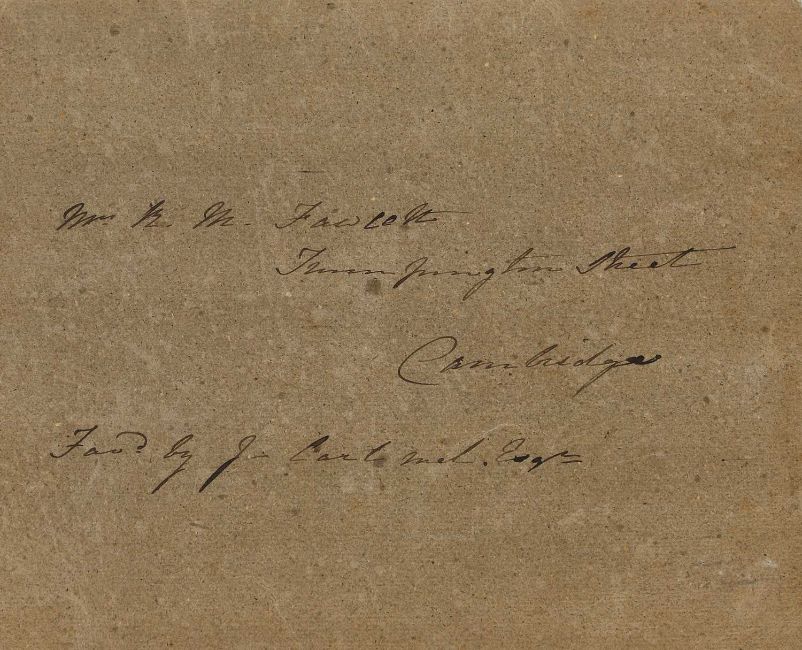 Mrs R. M. Fawcett
Trumpington Street
Cambridge
Favd by J- Cartmel. Esqr